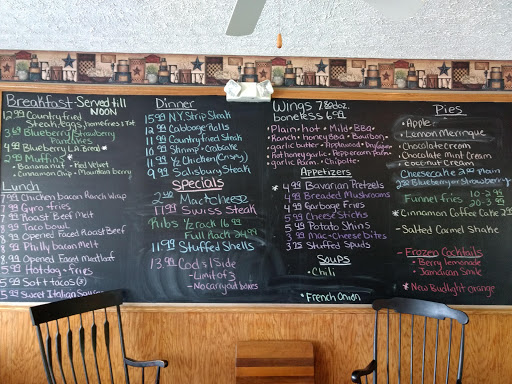 Breakfast - Served till
NOON
12.99 Country fried
Steak, eggs, homefries + Tst
3.69 Blueberry/Strawberry
Pancakes
4.99 Blueberry
2.99 Muffins
• Banana nut • Red Velvet
• Cinnamon Chip • Mountain berry
Lunch
7.99 Chicken bacon Ranch Wrap
7.99 Gyro + fries
7.99 Roast Beef Melt
8.99 Taco bowl
8.99 Opened Faced Roast Beef
8.99 Philly bacon Melt
8.99 Opened Faced meatloaf
5.99 Hotdog + fries
5.99 Soft tacos (2)
5.99 Sweet Italian
Dinner
15.99 N.Y. Strip Steak
12.99 Cabbage Rolls
11.99 Country Fried Steak
11.99 Shrimp
11.99 1/2 Chicken (Crispy)
9.99 Salisbury Steak
Specials
Mac + cheese
11.99 Swiss Steak
Ribs 1/2 rack 16.99
Full Rack 24.99
11.99 Stuffed Shells
13.99 Cod + 1 Side
- Limit of 3
- No carryout boxes
Wings 7.80 doz.
boneless 6.99
• Plain • hot • Mild • BBQ •
Ranch • honey BBQ • Bourbon •
garlic butter • Applewood • Dry Cajun
Hot honey garlic • Pepper corn parm
garlic parm • Chipotle •
Appetizers
* 4.99 Bavarian Pretzels
4.99 Breaded Mushrooms
4.99 Garbage Fries
5.99 Cheese Sticks
5.49 Potato Skins
3.99 Mac + Cheese bites
3.25 Stuffed Spuds
Soups
• Chili
• French Onion
Pies
• Apple
• Lemon Meringue
• Chocolate Cream
• Chocolate Mint Cream
• Coconut Cream
Cheesecake 2.99 Plain
2.99 Blueberry or Strawberry
Funnel fries 10 - 2.99
20 - 3.99
* Cinnamon Coffee Cake 2.99
- Salted Carmel Shake
- Frozen Cocktails
• Berry lemonade
• Jamaican Smile
* New Budlight orange